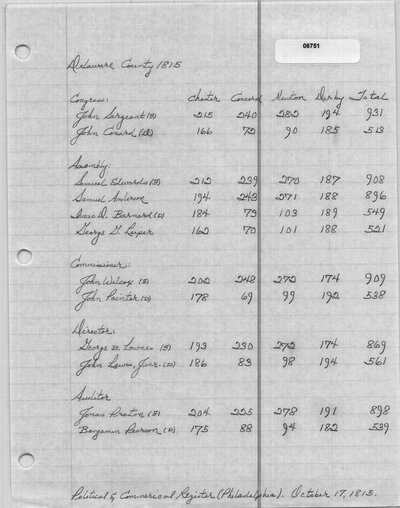 06751
Delaware County 1815
Chester Concord Newton Darby Total
Congress:
John Sergeant (F) 215 240 282 194 931
John Conard (D) 166 72 90 185 513
Assembly:
Samuel Edwards (F) 212 239 270 187 908
Samuel Anderson 194 243 271 188 896
Isaac D. Barnard (D) 184 73 103 189 549
George G. Leiper 162 70 101 188 521
Commissioner:
John Wilcox (F) 202 248 272 174 909
John Painter (D) 178 69 99 192 538
Director:
George B. Lownes (F) 193 230 272 174 869
John Lewis, Junr. (D) 186 83 98 194 561
Auditor
Jonas Preston (F) 204 225 278 191 898
Benjamin Pearson (D) 175 88 94 182 539
Political & Commerical Register (Philadelphia). October 17, 1815.